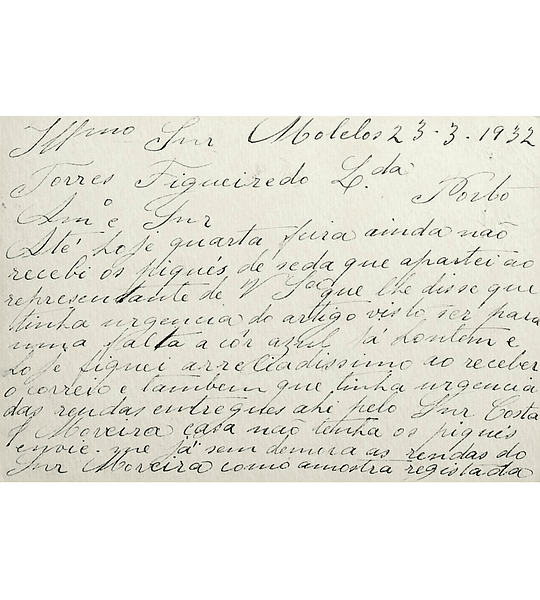 Illmo Snr Molelos 23-3-1932
Torres Figueiredo L.da
Porto
Am.º e Snr
Até hoje quarta feira ainda não
recebi os piqués de seda que apartei ao
representante de V S.as que lhe disse que
tinha urgencia do artigo visto ser para
uma falta a côr azul já hontem e
hoje fiquei arreliadissimo ao receber
o correio e tambem que tinha urgencia
das rendas entregues ahi pelo Snr Costa
Moreira casa não tenha os piqués
envie-me já sem demora as rendas do
Snr Moreira como amostra registada